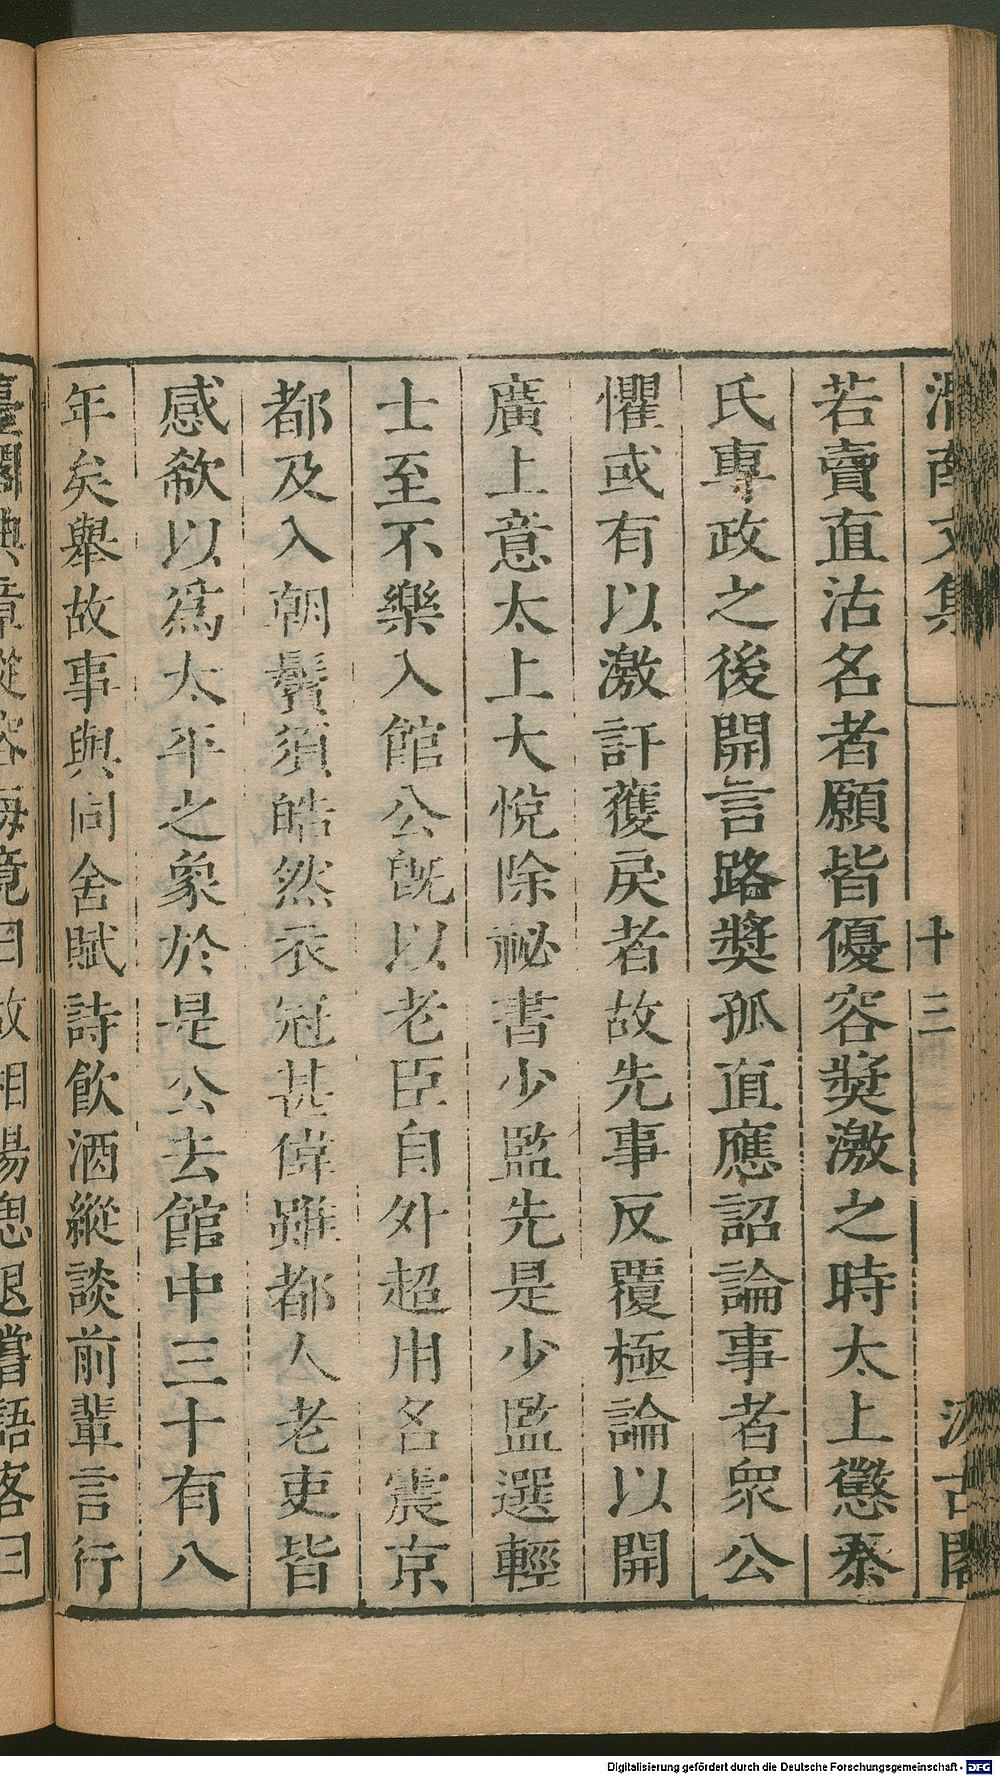 渭南文集
十三
汲古閣
若賣直沽名者願皆優容奬激之時太上懲秦
氏專政之後開言路奬孤直應詔論事者衆公
懼或有以激訐獲戾者故先事反覆極論以開
廣上意太上大悅除祕書少監先是少監選輕
士至不樂入館公旣以老臣自外超用名震京
都及入朝鬢須皓然衣冠甚偉雖都人老吏皆
感欷以爲太平之象於是公去館中三十有八
年矣舉故事與同舍賦詩飮酒縱談前輩言行
臺閣典章從容每竟日故相湯思退嘗語客曰
Digitalisierung gefördert durch die Deutsche Forschungsgemeinschaft - DFG